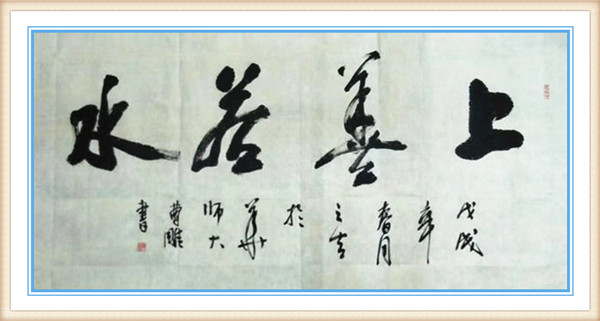 上善若水
戊戌
年
春月
之吉
於
華
师大
曹雕
書